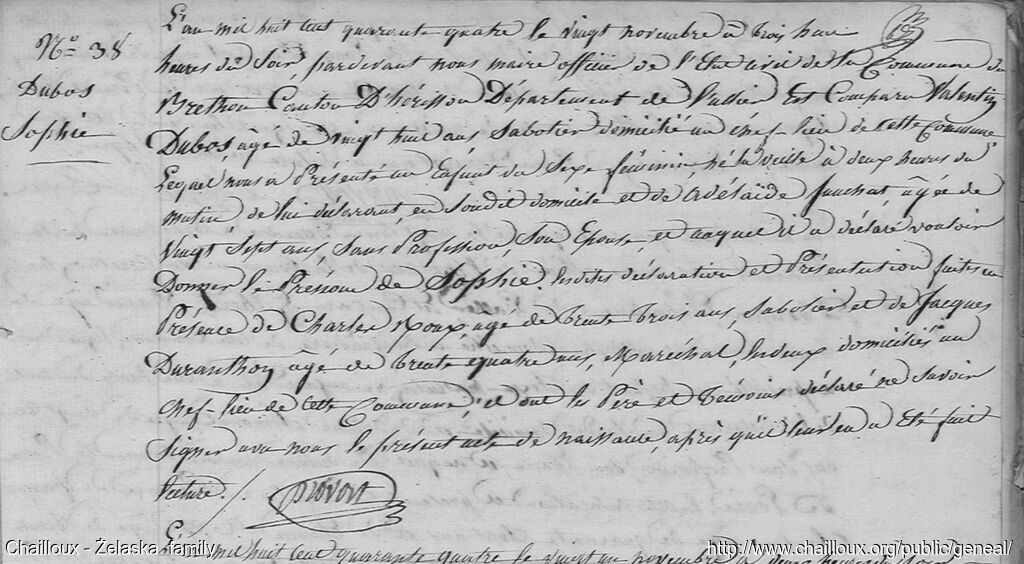 N.o 38
Dubos
Sophie
L'an mil huit cent quarante quatre le vingt novembre à trois
heures du Soir, pardevant nous maire officier de l'Etat civil de la Commune du
Brethon Canton D'hérisson Département de l'allier Est Comparu Valentin
Dubos, âgé de vingt huit ans Sabotier domicilié au chef-lieu de cette Commune
Lequel nous a Présenté un Enfant du Sexe féminin, né la veille à deux heures du
matin, de lui déclarant, en Son dit domicile et de Adélaïde fauchat, âgée de
Vingt Sept ans, Sans Profession, Son Epouse, et auquel il a déclaré vouloir
Donner le Prénom de Sophie. Lesdites déclaration et Présentation faites en
Présence de Charles Roux, agé de trente trois ans, Sabotier et de Jacques
Duranthon âgé de trente quatre ans, Maréchal, les deux domiciliés au
Chef-lieu de cette Commune, et ont les Père et témoins déclaré ne Savoir
Signer avec nous le présent acte de naissance, après qu'il leur en a Eté fait
Lecture ./.
provost
L'an mil huit cent quarante quatre le vingt un novembre à
Chailloux - Żelaska family
http://www.chailloux.org/public/geneal/